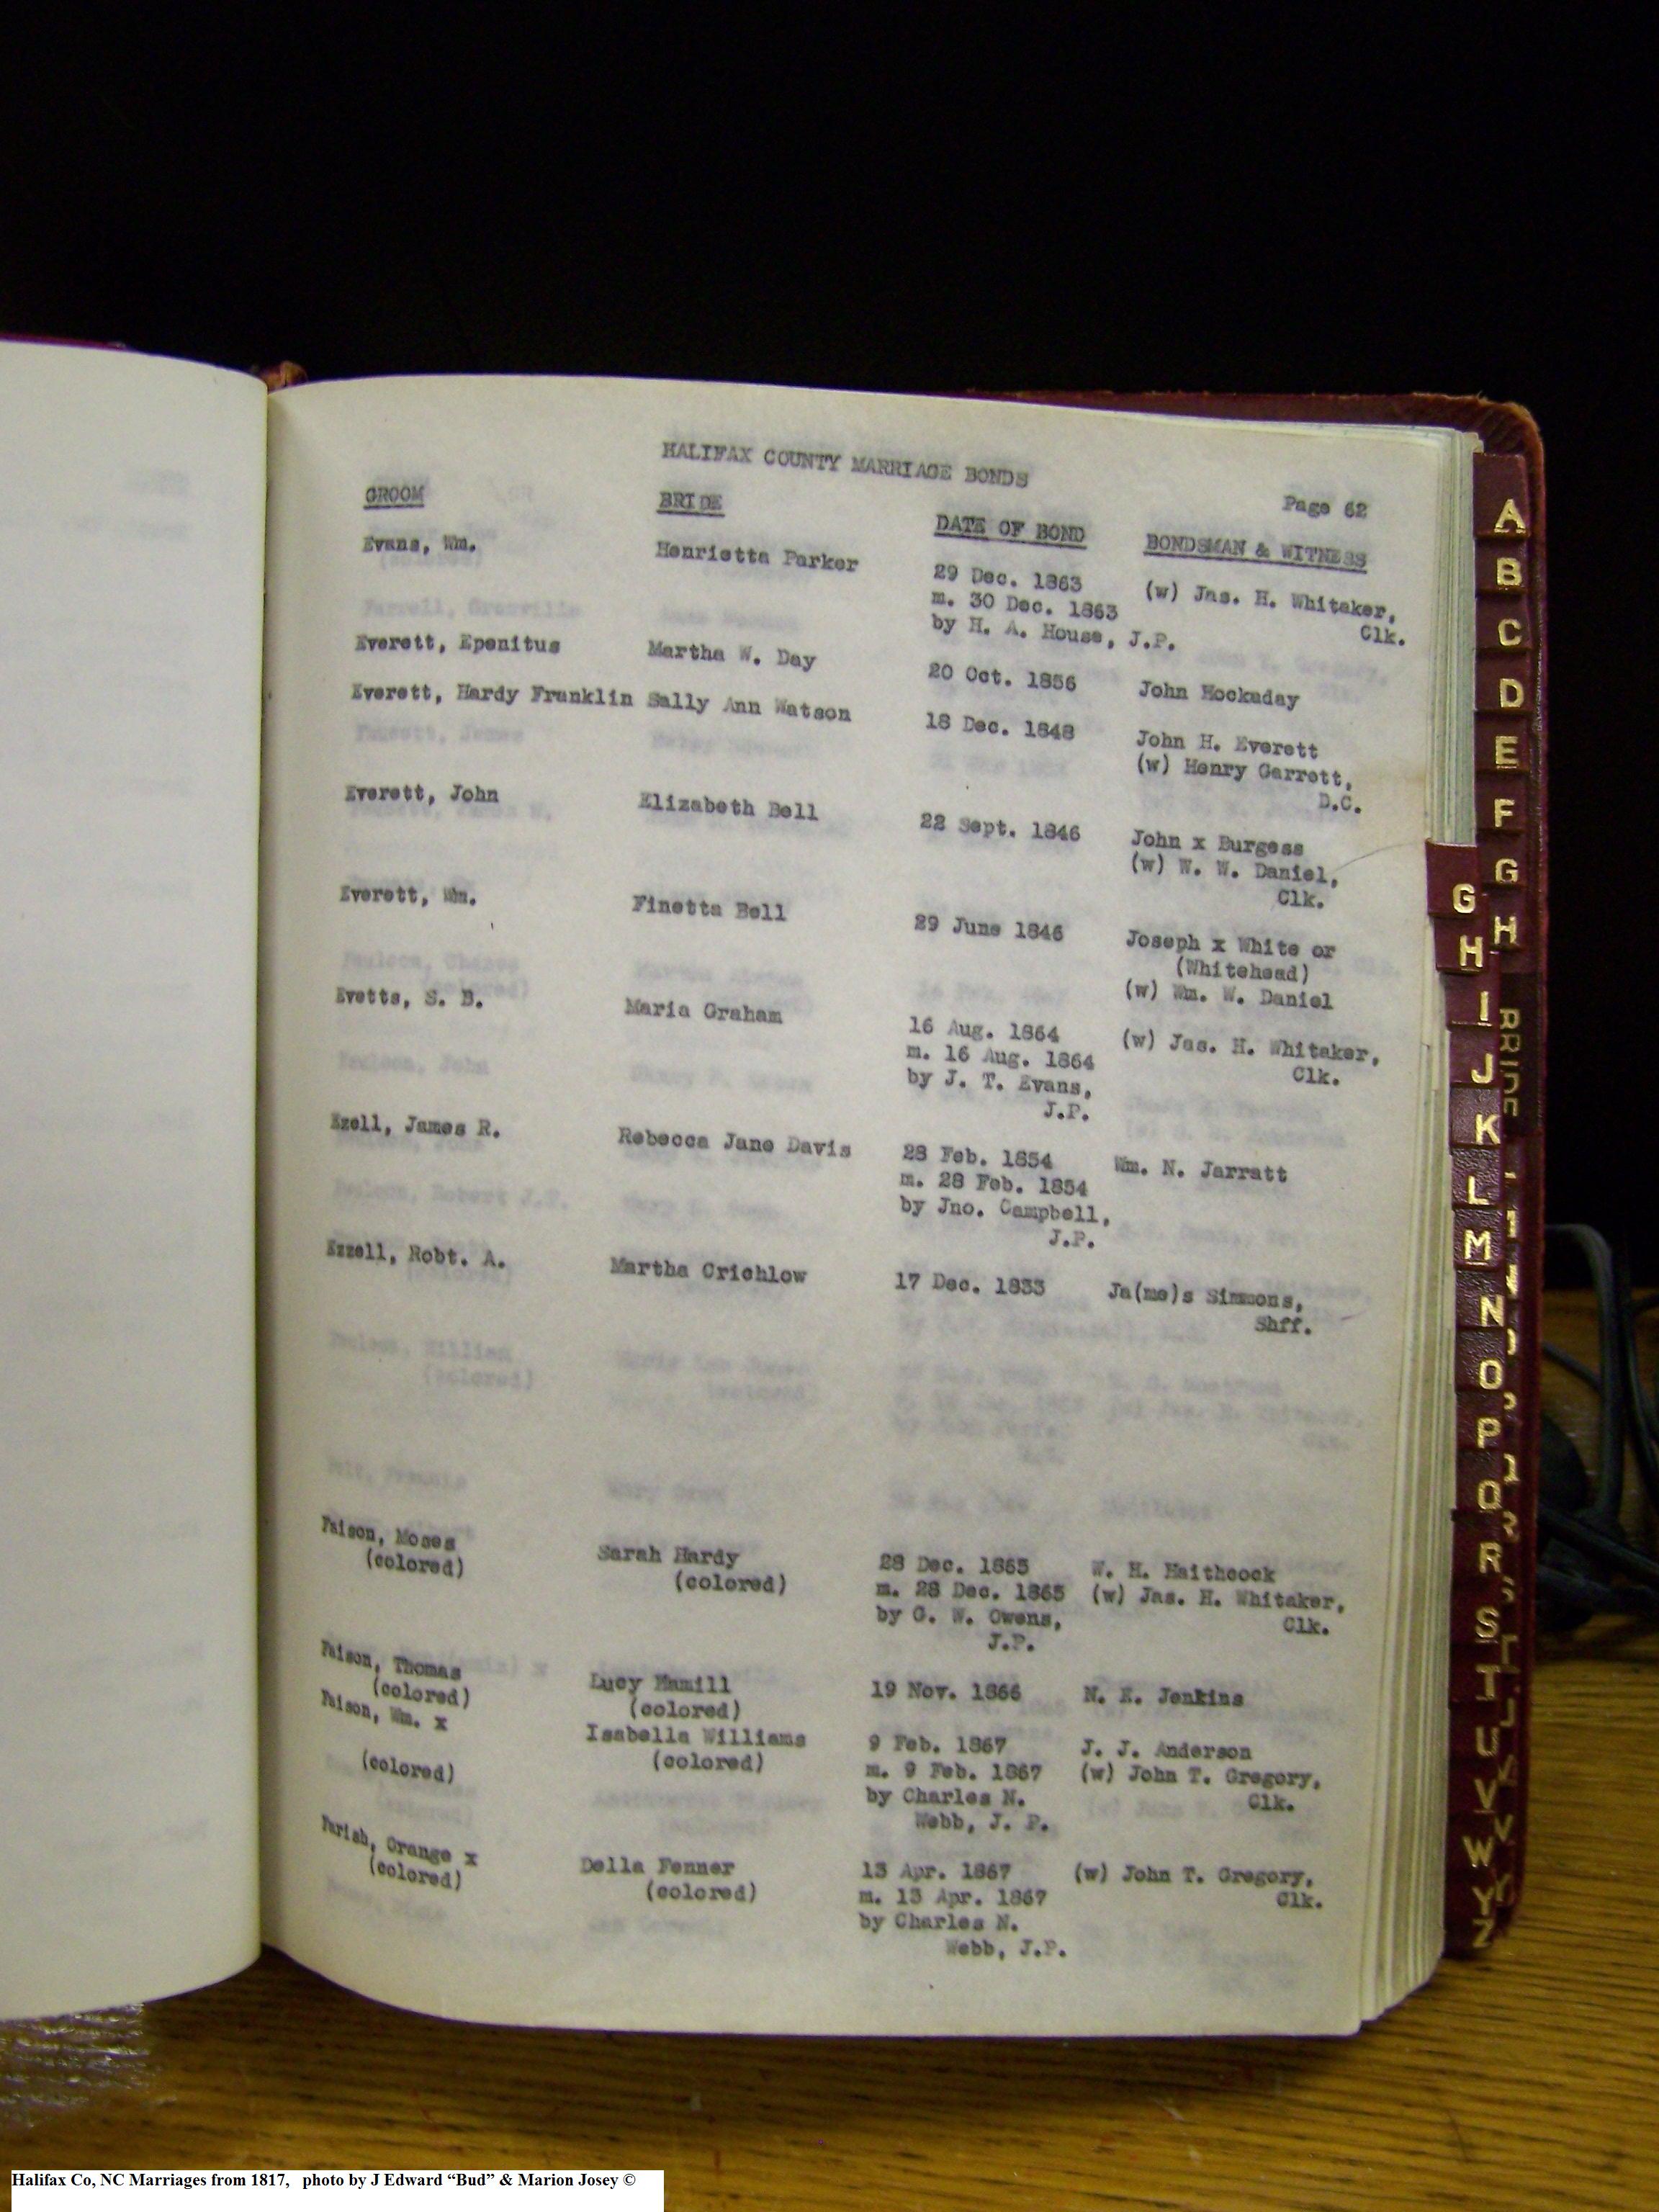 HALIFAX COUNTY MARRIAGE BONDS
Page 62
GROOM BRIDE DATE OF BOND BONDSMAN & WITNESS
Evans, Wm. Henrietta Parker 29 Dec. 1863 (w) Jas. H. Whitaker,
m. 30 Dec. 1863 Clk.
by H. A. House, J.P.
Everett, Epenitus Martha W. Day 20 Oct. 1856 John Hockaday
Everett, Hardy Franklin Sally Ann Watson 18 Dec. 1848 John H. Everett
(w) Henry Garrett,
D.C.
Everett, John Elizabeth Bell 22 Sept. 1846 John x Burgess
(w) W. W. Daniel,
Clk.
Everett, Wm. Finetta Bell 29 June 1846 Joseph x White or
(Whitehead)
(w) Wm. W. Daniel
Evetts, S. B. Maria Graham 16 Aug. 1864 (w) Jas. H. Whitaker,
m. 16 Aug. 1864 Clk.
by J. T. Evans,
J.P.
Ezell, James R. Rebecca Jane Davis 28 Feb. 1854 Wm. N. Jarratt
m. 28 Feb. 1854
by Jno. Campbell,
J.P.
Ezzell, Robt. A. Martha Crichlow 17 Dec. 1833 Ja(me)s Simmons,
Shff.
Faison, Moses Sarah Hardy 28 Dec. 1865 W. H. Haithcock
(colored) (colored) m. 28 Dec. 1865 (w) Jas. H. Whitaker,
by G. W. Owens, Clk.
J.P.
Faison, Thomas Lucy Hamill 19 Nov. 1866 N. E. Jenkins
(colored) (colored)
Faison, Wm. x Isabella Williams 9 Feb. 1867 J. J. Anderson
(colored) (colored) m. 9 Feb. 1867 (w) John T. Gregory,
by Charles N. Clk.
Webb, J. P.
Farish, Orange x Della Fenner 13 Apr. 1867 (w) John T. Gregory,
(colored) (colored) m. 13 Apr. 1867 Clk.
by Charles N.
Webb, J.P.
A
B
C
D
E
F
G
H
BRIDE
G
H
I
J
K
L
M
N
O
P
Q
R
S
T
U
V
W
Y
Z
Halifax Co, NC Marriages from 1817, photo by J Edward “Bud” & Marion Josey ©